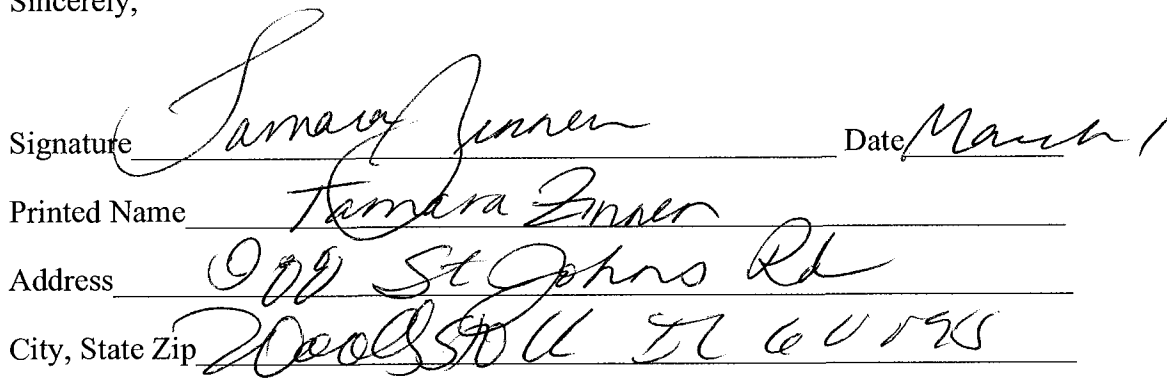 Sincerely,
Signature Tamara Zinnen Date March 1
Printed Name Tamara Zinnen
Address 900 St Johns Rd
City, State Zip Woodstock IL